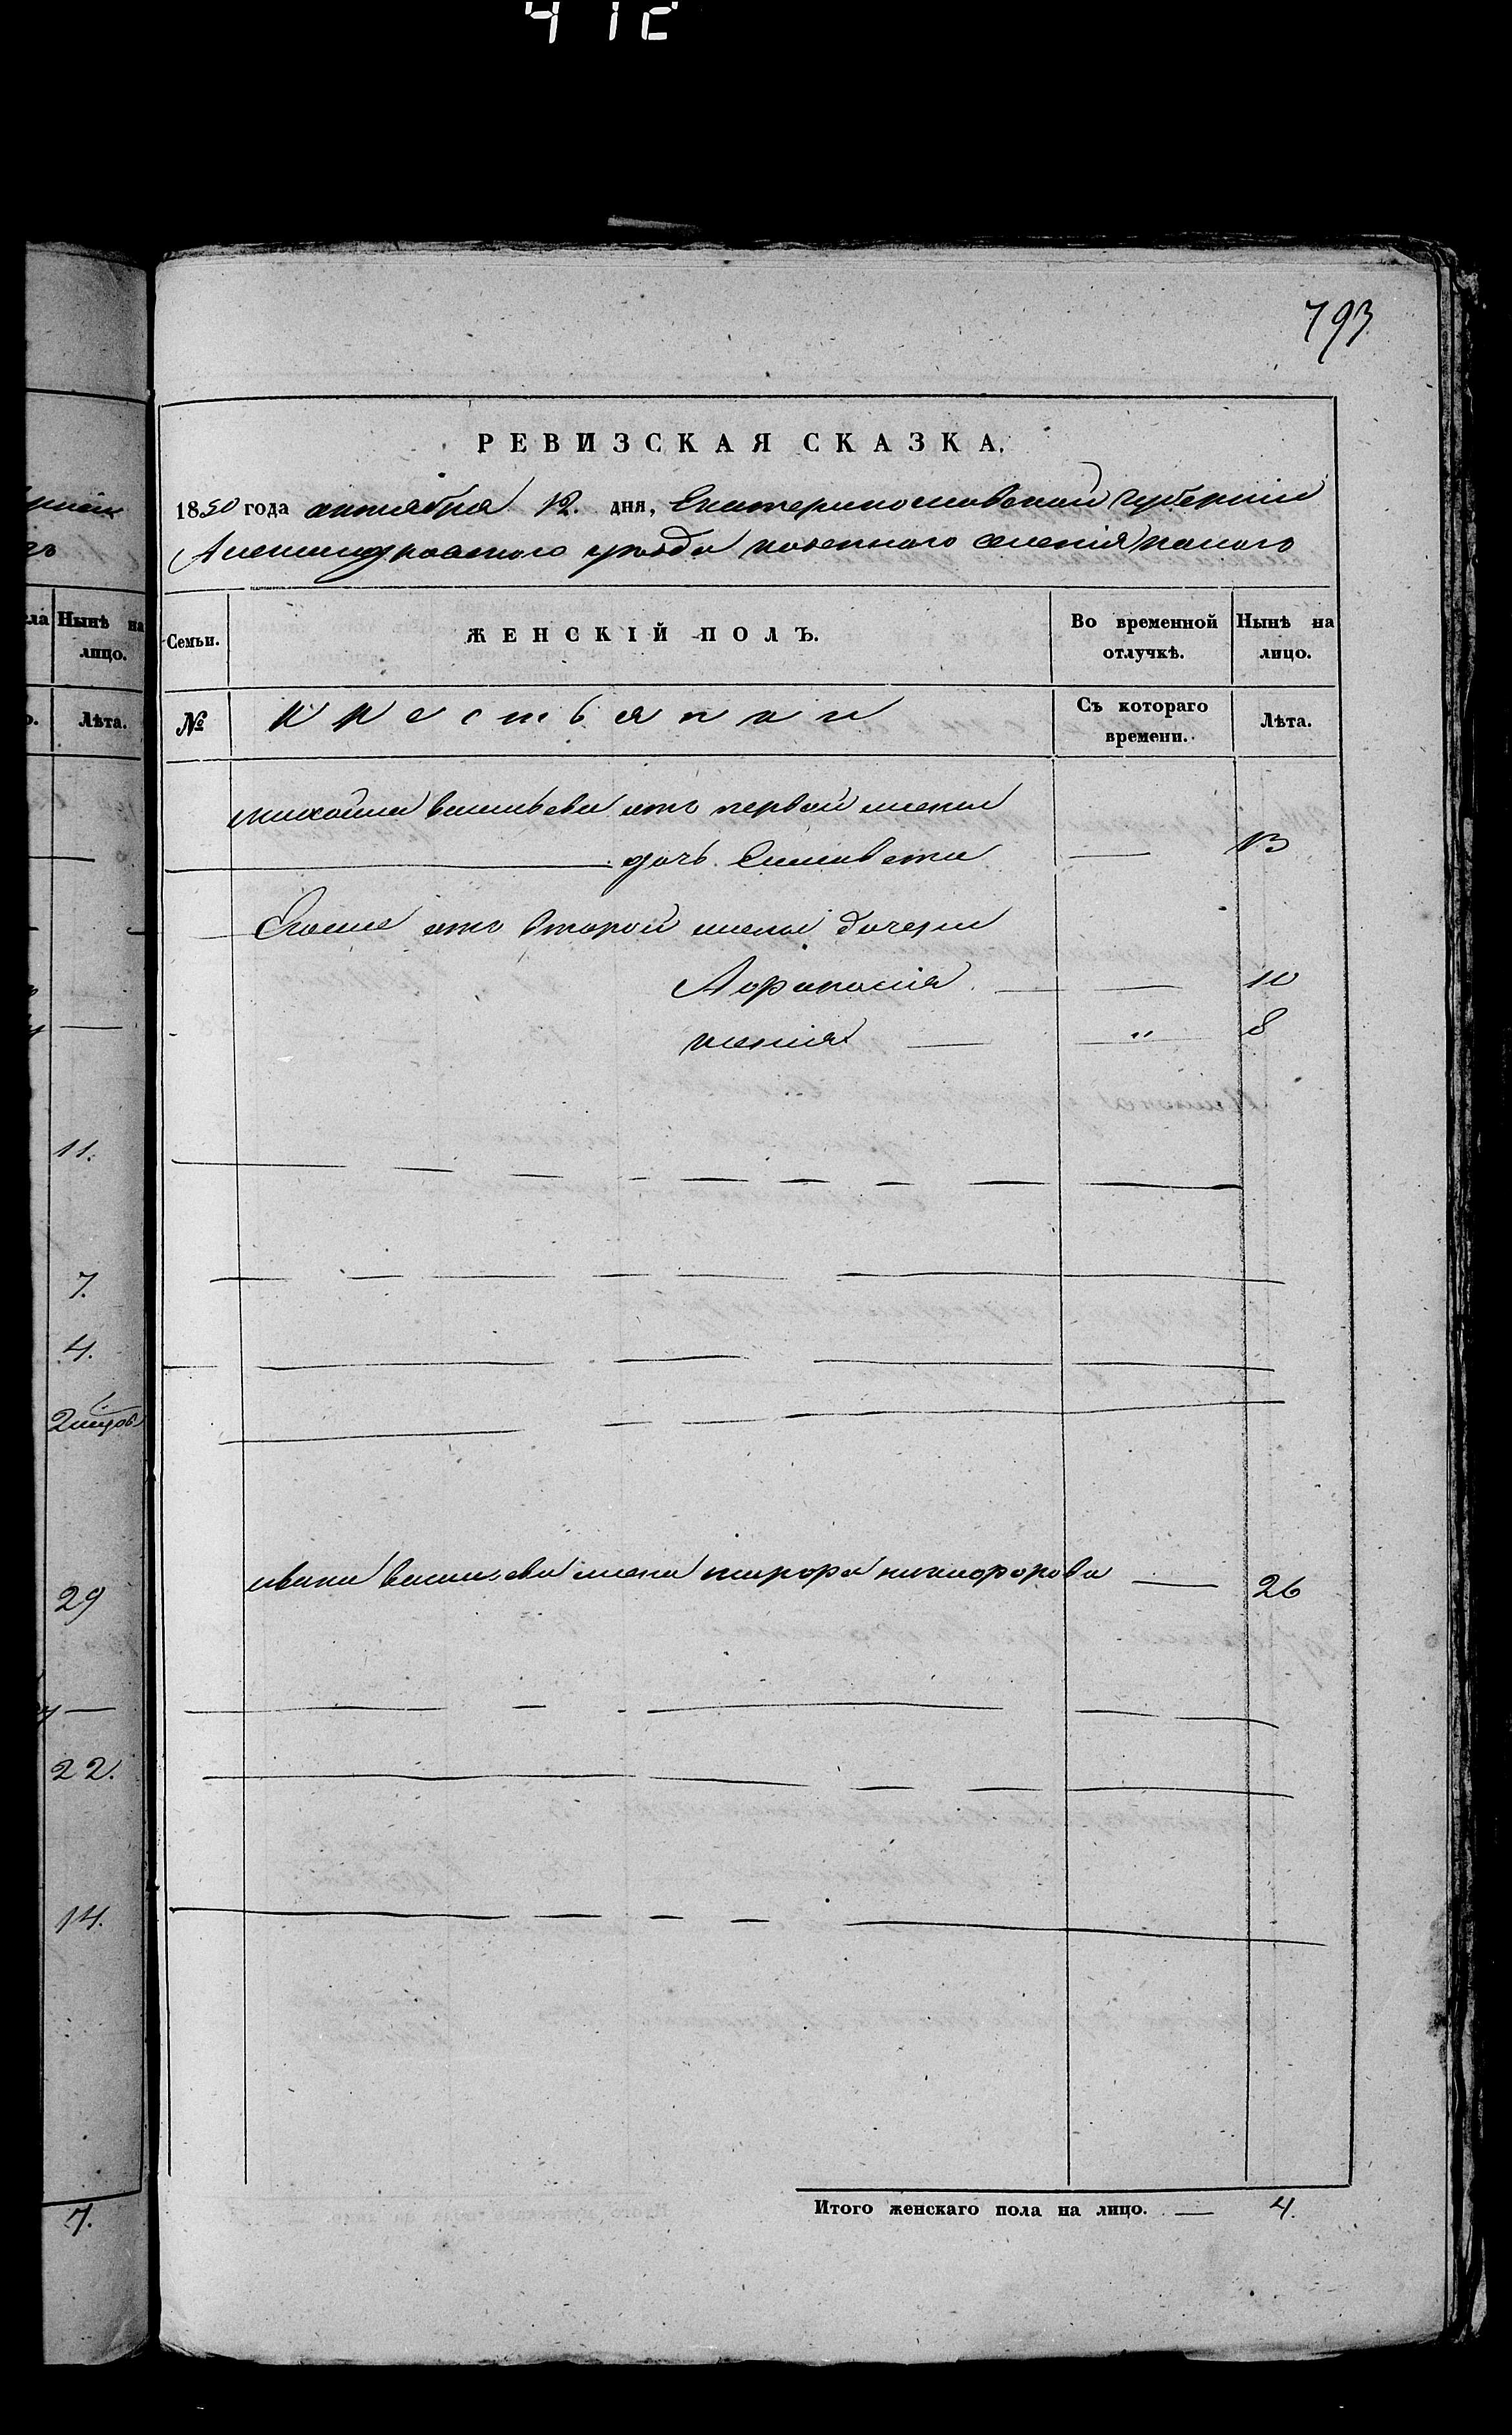 412
793
РЕВИЗСКАЯ СКАЗКА.
1850 года октября 12. дня, Екатеринославской Губерніи
Александровского уезда казенного селенія
Семьи.
ЖЕНСКІЙ ПОЛЪ.
Во временной отлучкѣ.
Нынѣ на лицо.
№
Крестьянки
Съ котораго времени.
Лѣта.
михайла васильева отъ первой жены
дочь Елисавета — 13
Егоже отъ второй жены дочери
Афанасія — — 10
ксенія — „ 8
ивана васильева жена никифорова — 26
Итого женскаго пола на лицо. — 4.
Нынѣ на
лицо.
Лѣта.
11.
7.
4.
29
22.
14.
7.